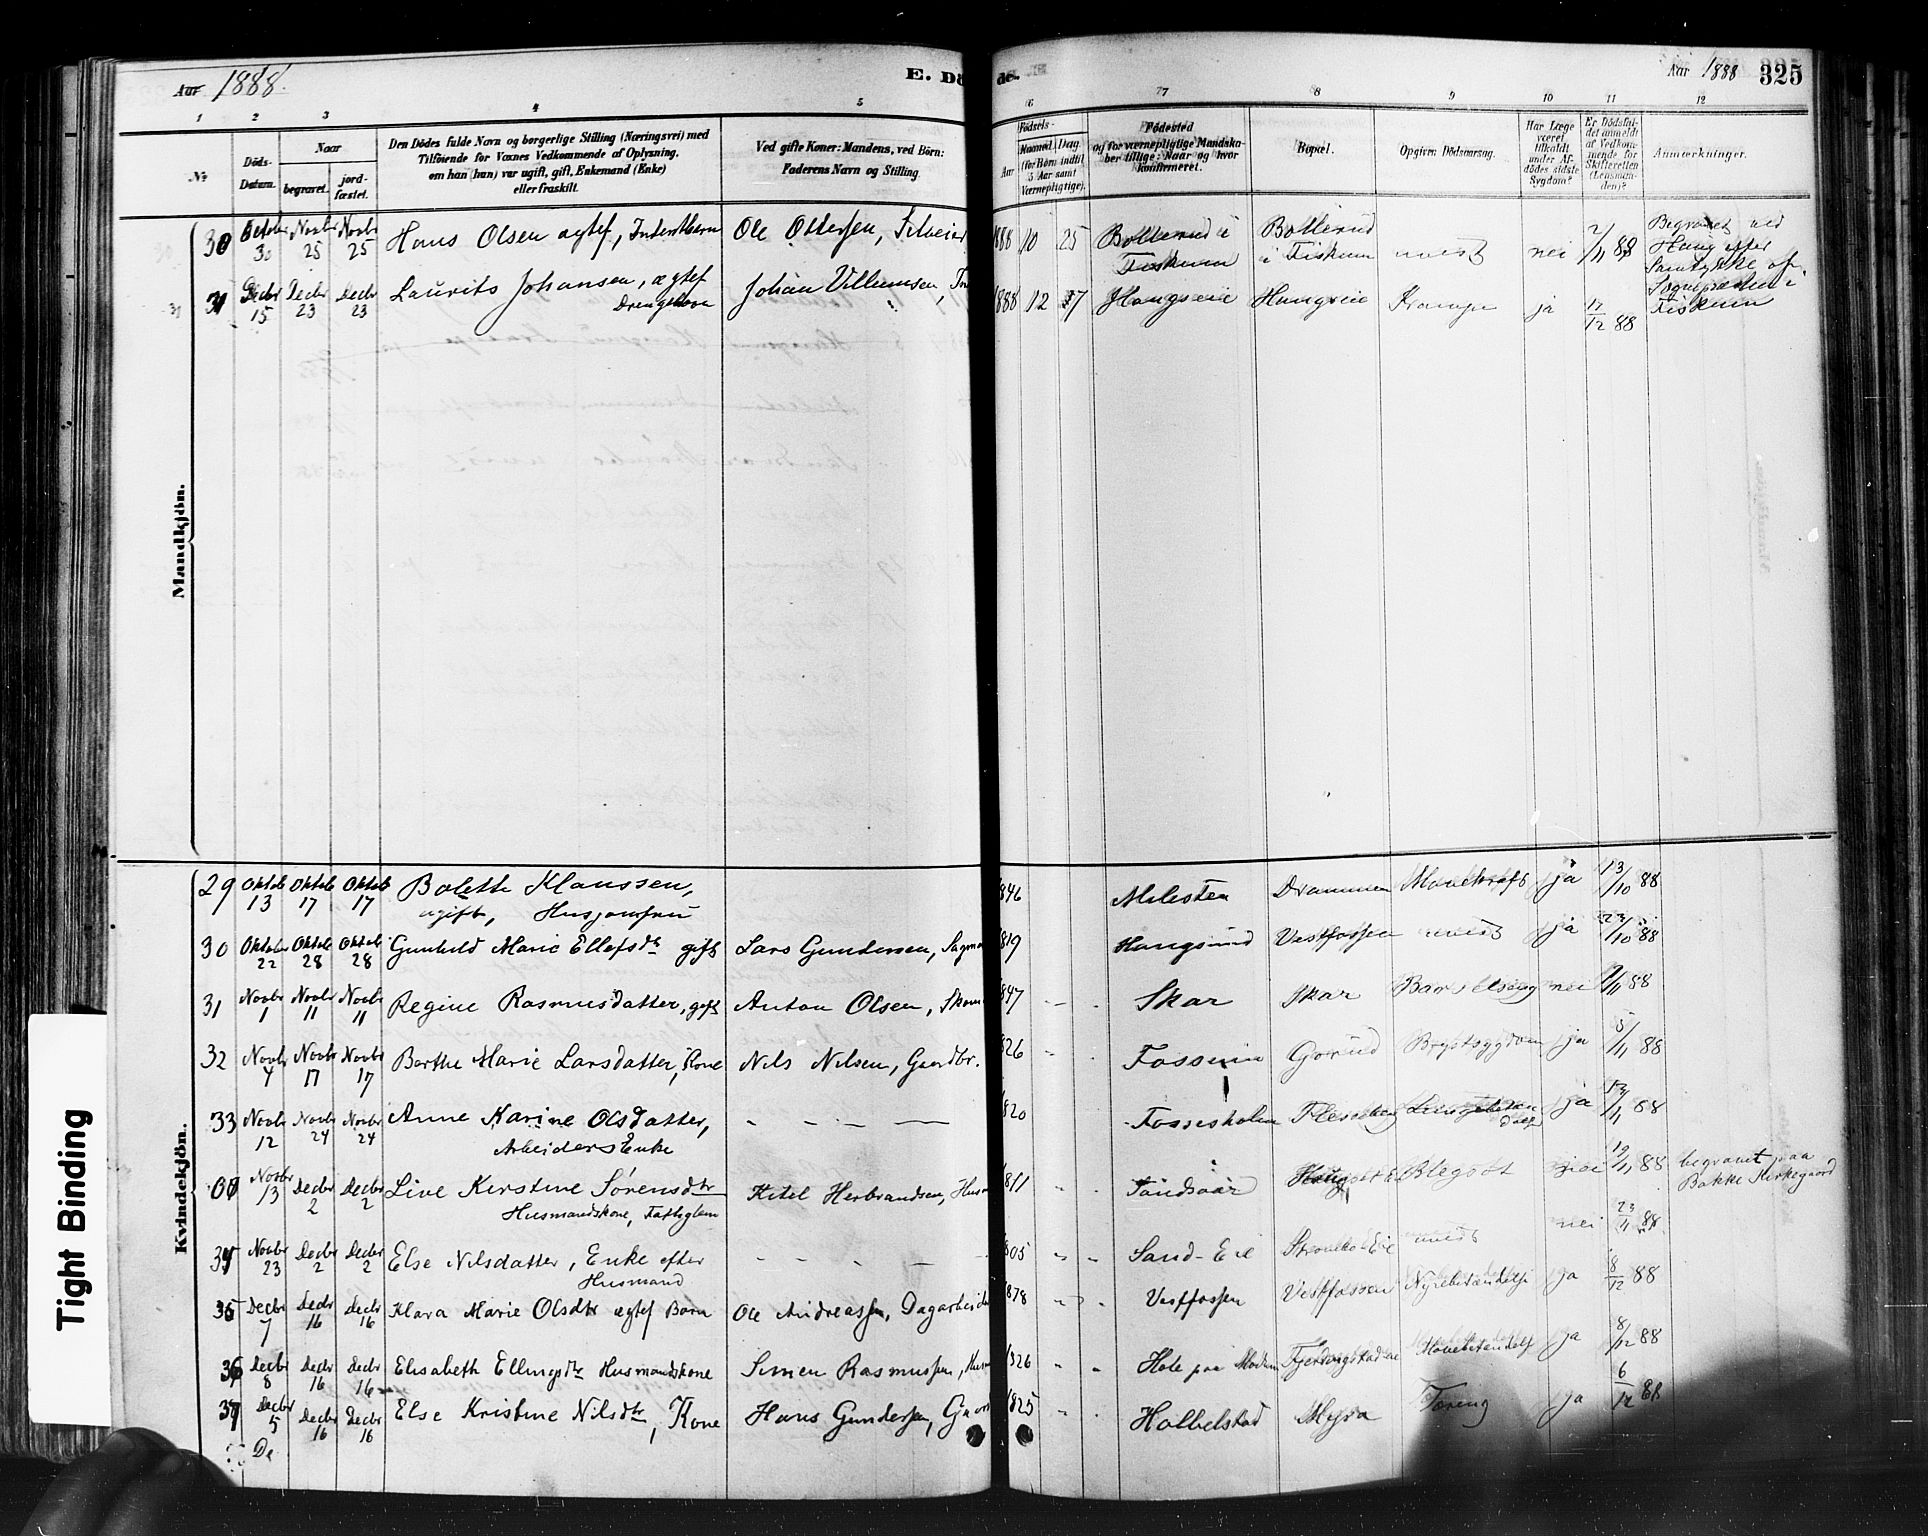 Aar 1888.
E. Dö
de.
Aar 1888
325
1 2 3 4 5 6 7 8 9 10 11 12
№
Döds-Datum.
Naar
begravet.
jord-fæstet.
Den Dödes fulde Navn og borgerlige Stilling (Næringsvei) med
Tilföiende for Voxnes Vedkommende af Oplysning,
om han (hun) var ugift, gift, Enkemand (Enke)
eller fraskilt.
Ved gifte Koner: Mandens, ved Börn:
Faderens Navn og Stilling.
Födsels-
Aar
Maaned. Dag.
(for Börn indtil
5 Aar samt
Værnepligtige).
Födested
og for værnepligtige Mandska-
ber tillige: Naar og hvor
konfirmeret.
Bopæl.
Opgiven Dödsaarsag.
Har Læge
været
tilkaldt
under Af-
dödes sidste
Sygdom?
Er Dödsfal-
det anmeldt
af Vedkom-
mende for
Skifteretten
(Lensman-
den)?
Anmærkninger.
Mandkjön.
30 October 30 Novbr 25 Novbr 25 Hans Olsen ægtef, Ole Ottersen, Selveier 888 10 25 Bollerud i Fiskum Bollerud i Fiskum uvist nei 2/11 88
Begravet ved
Haug efter
Samtykke af
Sognepræsten i
Fiskum
31 Decbr 15 Decbr 23 Decbr 23 Laurits Johansen, ægtef Drengebarn Johan Villumsen, 888 12 7 Haugseie Haugseie Krampe ja 17/12 88
Kvindekjön.
29 Oktob 13 Oktob 17 Oktob 17 Bolette Klaussen, ugift, Husjomfru 846 Milesten Drammen ja 13/10 88
30 Oktober 22 Oktob 28 Oktob 28 Gunhild Marie Ellefsdtr gift Lars Gundersen, Sagm 819 Haugsund Vestfossen uvist ja 23/10 88
31 Novbr 1 Novbr 11 Novbr 11 Regine Rasmusdatter, gift Anton Olsen, Skom 847 Skar Skar Barselseng nei /11 88
32 Novbr 4 Novbr 17 Novbr 17 Berthe Marie Larsdatter, Kone Nils Nilsen, Gaardbr. 826 Fossum Gorud Brystsygdom ja 5/11 88
33 Novbr 12 Novbr 24 Novbr 24 Anne Karine Olsdatter, Arbeiders Enke 820 Fossesholm Flesaker Lungebetændelse ja 13/11 88
00 Novbr 13 Decbr 2 Decbr 2 Live Kirstine Sörensdtr Husmandskone, Fattiglem Ketel Herbrandsen, Husm 811 Blegsot nei 19/11 88 begravet paa
Bakke Kirkegaard
34 Novbr 23 Decbr 2 Decbr 2 Else Nilsdatter, Enke efter Husmand 805 Sand-Eie uvist nei 23/11 88
35 Decbr 7 Decbr 16 Decbr 16 Klara Marie Olsdtr ægtef Barn Ole Andreassen, Dagarbeider 878 Vestfossen Vestfossen Nyrebetændelse ja 8/12 88
36 Decbr 8 Decbr 16 Decbr 16 Elisabeth Ellingsdtr Husmandskone Simen Rasmussen, Husm 1826 Hole paa Modum ja 8/12 88
37 Decbr 5 Decbr 16 Decbr 16 Else Kristine Nilsdtr, Kone Hans Gundersen, Gaard 1825 Hobbelstad Myra Tæring ja 6/12 88
De
Tight Binding